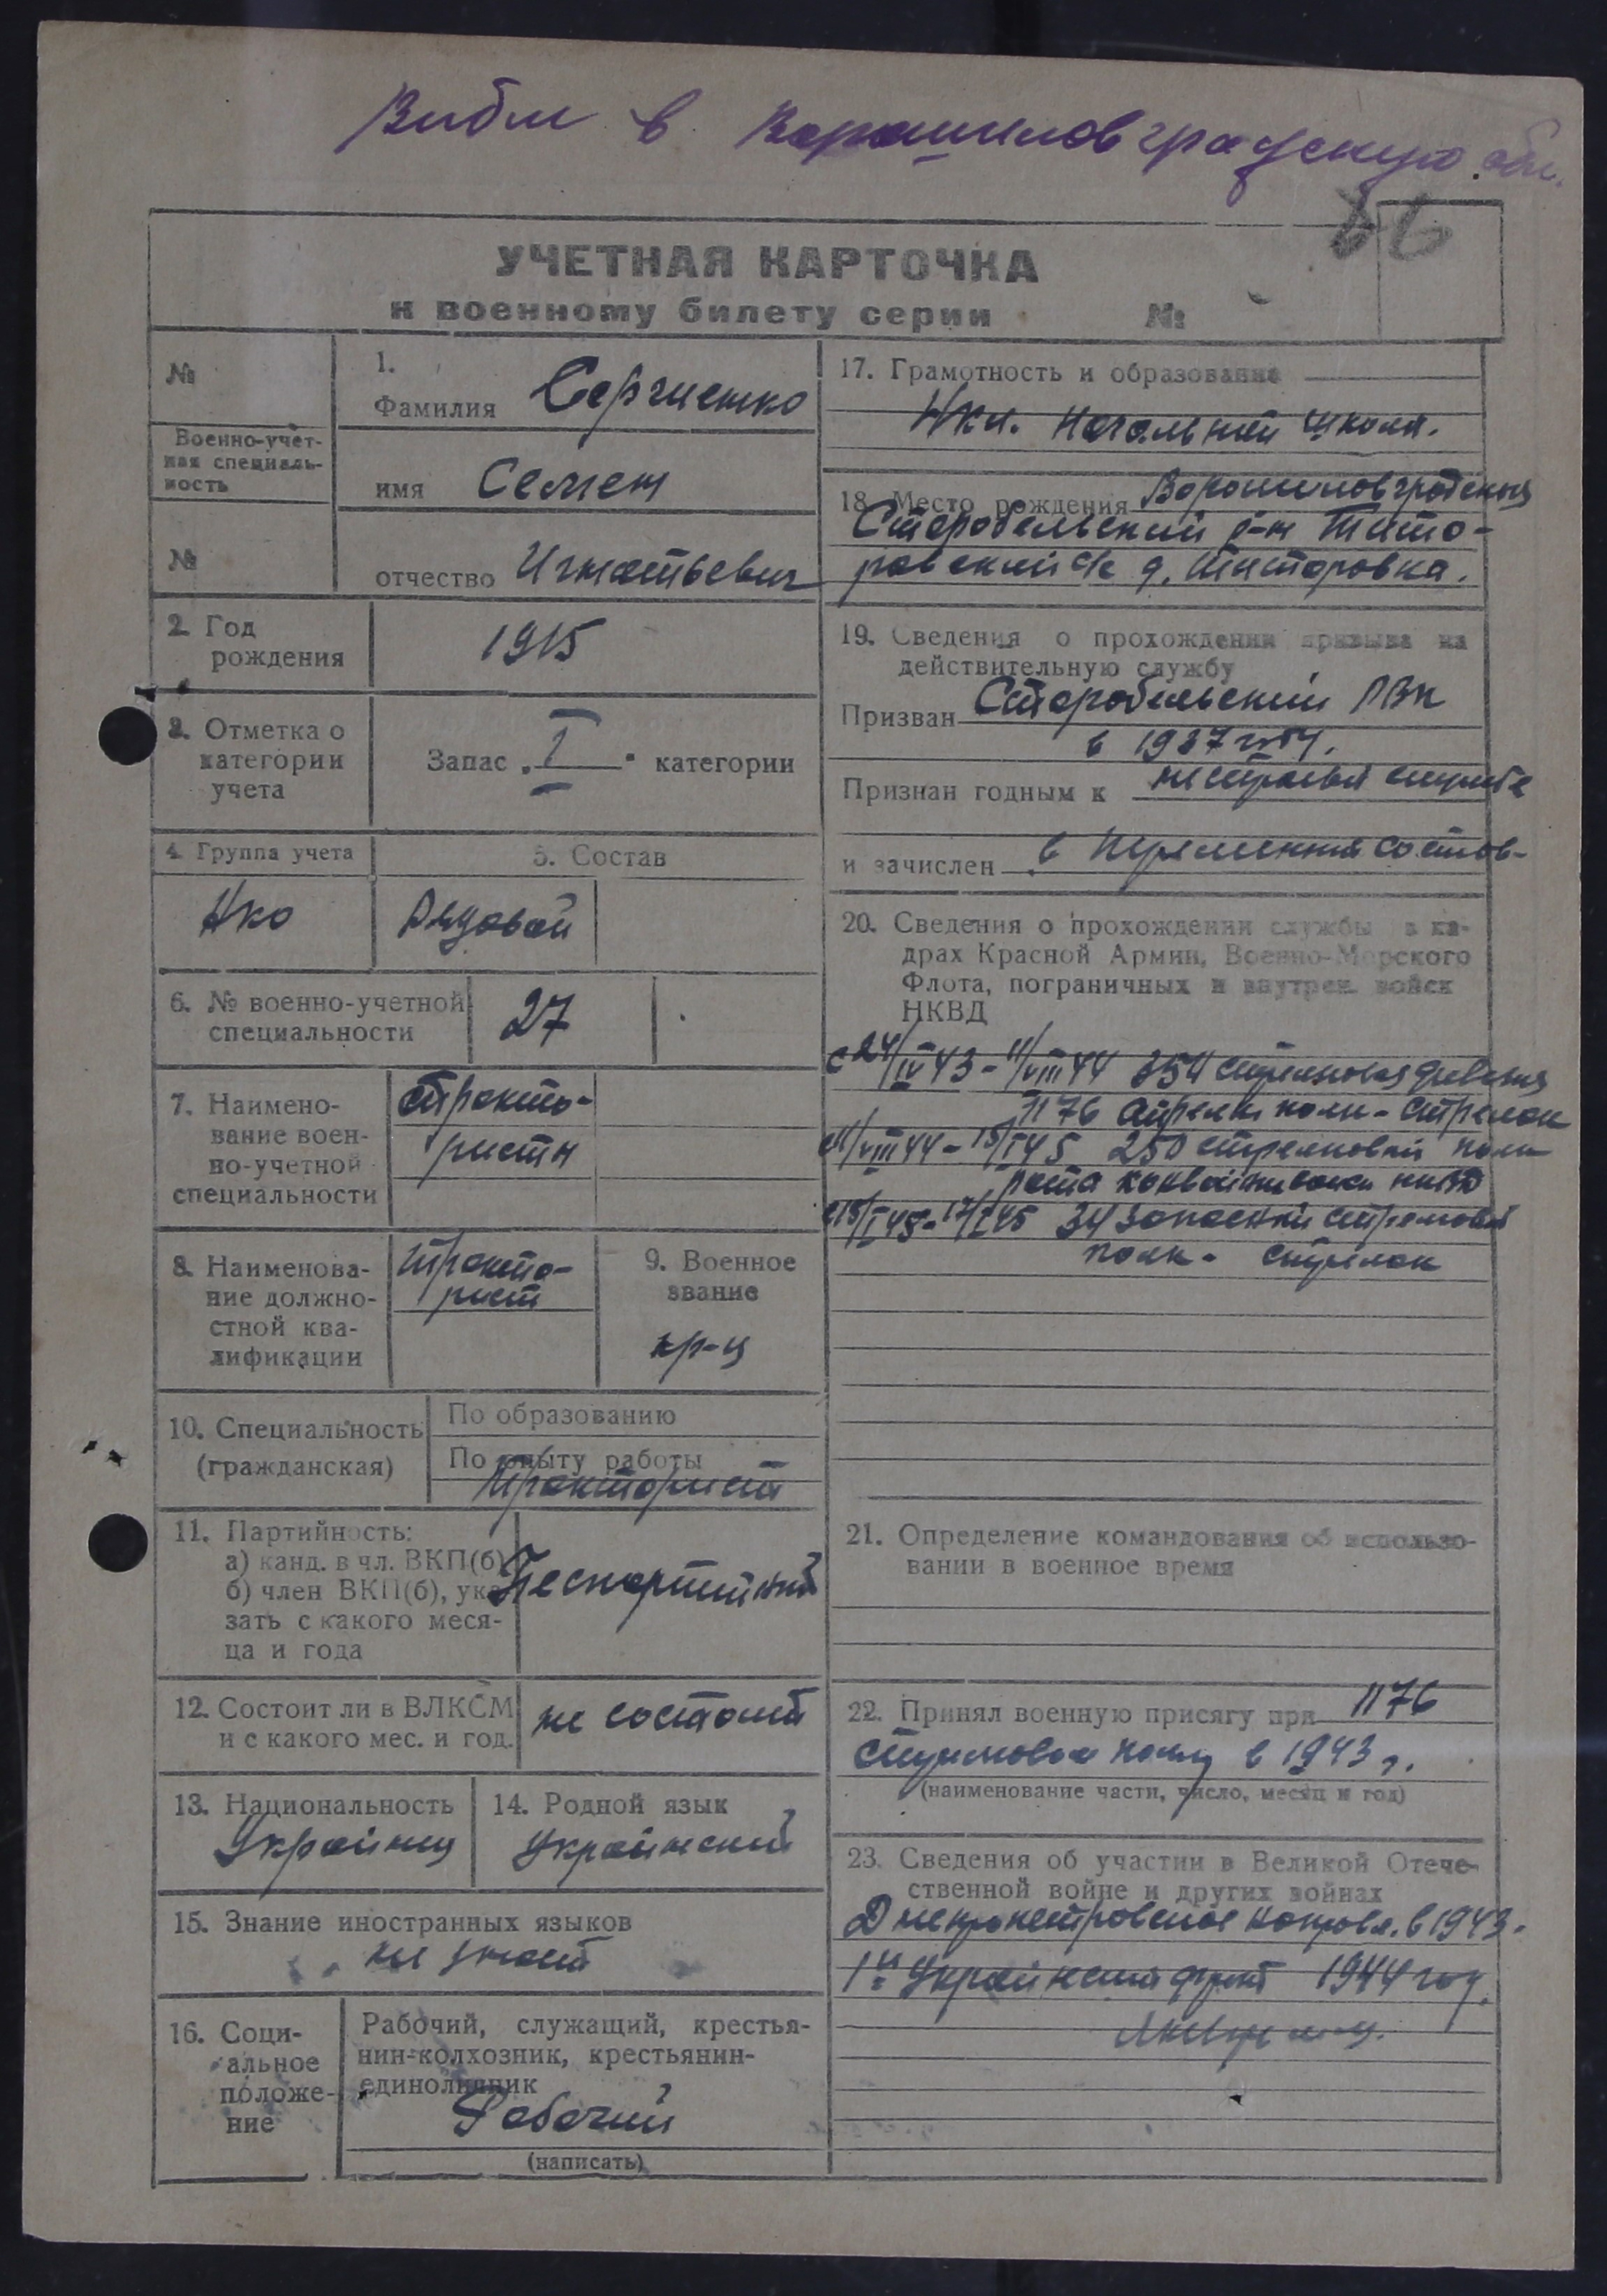 Вибыл в Ворошиловградскую обл.
86
УЧЕТНАЯ КАРТОЧКА
к военному билету серии №
№
Военно-учет-
ная специаль-
ность
№
1.
Фамилия Сергиенко
имя Семен
отчество Игнатьевич
2. Год
рождения
1915
3. Отметка о
категории
учета
Запас „I" категории
4. Группа учета
НКО
5. Состав
Рядовой
6. № военно-учетной
специальности
27
7. Наимено-
вание воен-
но-учетной
специальности
тракто-
ристы
8. Наименова-
ние должно-
стной ква-
лификации
тракто-
рист
9. Военное
звание
кр-ц
10. Специальность
(гражданская)
По образованию
По опыту работы
тракторист
11. Партийность:
а) канд. в чл. ВКП(б)
б) член ВКП(б), ука-
зать с какого меся-
ца и года
Беспартийный
12. Состоит ли в ВЛКСМ
и с какого мес. и год.
не состоит
13. Национальность
Украинец
14. Родной язык
Украинский
15. Знание иностранных языков
не знает
16. Соци-
альное
положе-
ние
Рабочий, служащий, крестья-
нин-колхозник, крестьянин-
единоличник
Рабочий
(написать)
17. Грамотность и образование
4кл. Начальной школы.
18. Место рождения Ворошиловградская
Старобельский р-н Тито-
ровский с/с д. Титоровка.
19. Сведения о прохождении призыва на
действительную службу
Призван Старобельский РВК
в 1937 году.
Признан годным к нестроевой службе
и зачислен в переменный состав
20. Сведения о прохождении службы в ка-
драх Красной Армии, Военно-Морского
Флота, пограничных и внутрен. войск
НКВД
с 24/IV 43 - 11/VIII 44 354 стрелковая дивизия
1176 стрелк полк - стрелок
с 11/VIII 44 - 15/I 45 250 стрелковый полк
рота конвойных войск НКВД
с 15/I 45 - 17/I 45 34 запасный стрелковый
полк - стрелок
21. Определение командования об использо-
вании в военное время
22. Принял военную присягу при 1176
стрелковом полку в 1943 г.
(наименование части, число, месяц и год)
23. Сведения об участии в Великой Отече-
ственной войне и других войнах
Днепропетровское направл. в 1943.
1й Украинский фронт 1944 год.